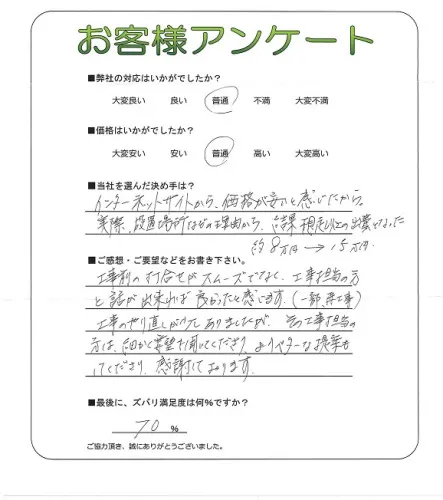 お客様アンケート
■弊社の対応はいかがでしたか?
大変良い 良い 普通 不満 大変不満
■価格はいかがでしたか?
大変安い 安い 普通 高い 大変高い
■当社を選んだ決め手は?
インターネットサイトから、価格が安いと感じたから。
実際、設置場所などの理由から、結果想定以上の出費となった
約8万円→15万円
■ご感想・ご要望などをお書き下さい。
工事前の打合せがスムーズでなく、工事担当の方
と話が出来れば良かったと感じます。(一部 工事)
工事のやり直しが ありましたが、その工事担当の
方は、細かく要望も聞いてくださり、よりベターな提案も
してくださり、感謝しております。
■最後に、ズバリ満足度は何%ですか?
70 %
ご協力頂き、誠にありがとうございました。